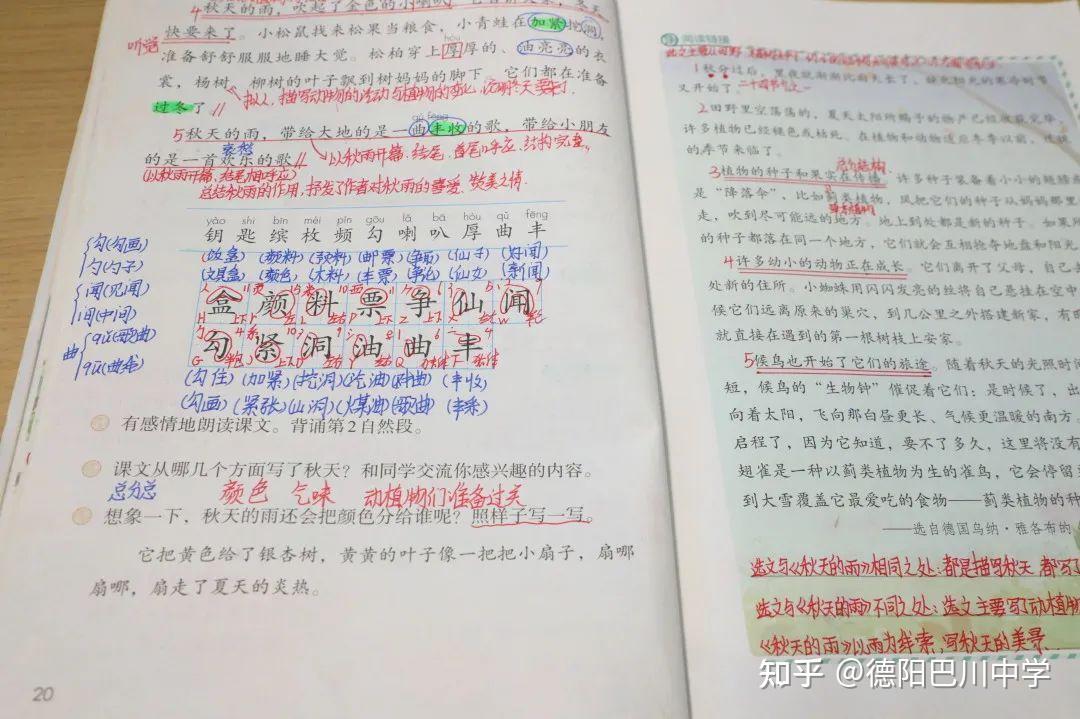 4秋天的雨,吹起了金色的小喇叭,它告诉大家,冬天
快要来了。小松鼠找来松果当粮食,小青蛙在加紧挖洞,
准备舒舒服服地睡大觉。松柏穿上厚厚的、油亮亮的衣
裳,杨树、柳树的叶子飘到树妈妈的脚下。它们都在准备
过冬了。
拟人,描写动物的活动与植物的变化,说明冬天要来了.
5秋天的雨,带给大地的是一曲丰收的歌,带给小朋友
的是一首欢乐的歌。
以秋雨开篇、结尾,首尾呼应,结构完整。
(以秋雨开篇,结尾相呼应)
总结秋雨的作用,抒发了作者对秋雨的喜爱、赞美之情.
yào shi bīn méi pín gōu lǎ bā hòu qǔ fēng
钥 匙 缤 枚 频 勾 喇 叭 厚 曲 丰
勾(勾画)
勺(勺子)
闻(见闻)
间(中间)
曲 qǔ(歌曲)
qū(曲线)
(饭盒)(颜料)(饮料)(邮票)(争取)(仙子)(好闻)
(文具盒)(颜色)(木料)(车票)(争论)(仙女)(新闻)
盒 颜 料 票 争 仙 闻
勾 紧 洞 油 曲 丰
(勾住)(加紧)(挖洞)(吃油)(对曲)(丰收)
(勾画)(紧张)(山洞)(煤油)(歌曲)(丰乐)
有感情地朗读课文。背诵第2自然段。
课文从哪几个方面写了秋天?和同学交流你感兴趣的内容。
总分总 颜色 气味 动植物们准备过冬
想象一下,秋天的雨还会把颜色分给谁呢?照样子写一写。
它把黄色给了银杏树,黄黄的叶子像一把把小扇子,扇哪
扇哪,扇走了夏天的炎热。
20
阅读链接
1秋分过后,黑夜就渐渐比白天长了,缺光和光的寒冷时节
又开始了。二十四节气之一
2田野里空荡荡的,夏天太阳所赐予的物产已经收获完毕,
许多植物已经褪色或枯死。在植物和动物适应冬季以前,过渡
的季节来临了。
总分结构
3植物的种子和果实在传播。许多种子装备着小小的翅膀或
是“降落伞”,比如蓟类植物,风把它们的种子从妈妈那里
走,吹到尽可能远的地方。地上到处都是新的种子。如果所
的种子都落在同一个地方,它们就会互相抢夺地盘和阳光
4许多幼小的动物正在成长。它们离开了父母,自己去
处新的住所。小蜘蛛用闪闪发亮的丝将自己悬挂在空中
候它们远离原来的巢穴,到几公里之外搭建新家,有时
就直接在遇到的第一根树枝上安家。
5候鸟也开始了它们的旅途。随着秋天的光照时间
短,候鸟的“生物钟”催促着它们:是时候了,出
向着太阳,飞向那白昼更长、气候更温暖的南方。
启程了,因为它知道,要不了多久,这里将没有
翅雀是一种以蓟类植物为生的雀鸟,它会停留
到大雪覆盖它最爱吃的食物——蓟类植物的种
——选自德国乌纳·雅各布的
选文与《秋天的雨》相同之处:都是描写秋天 都写了
选文与《秋天的雨》不同之处:选文主要写了动植物
《秋天的雨》以雨为线索,写秋天的美景
知乎 @德阳巴川中学